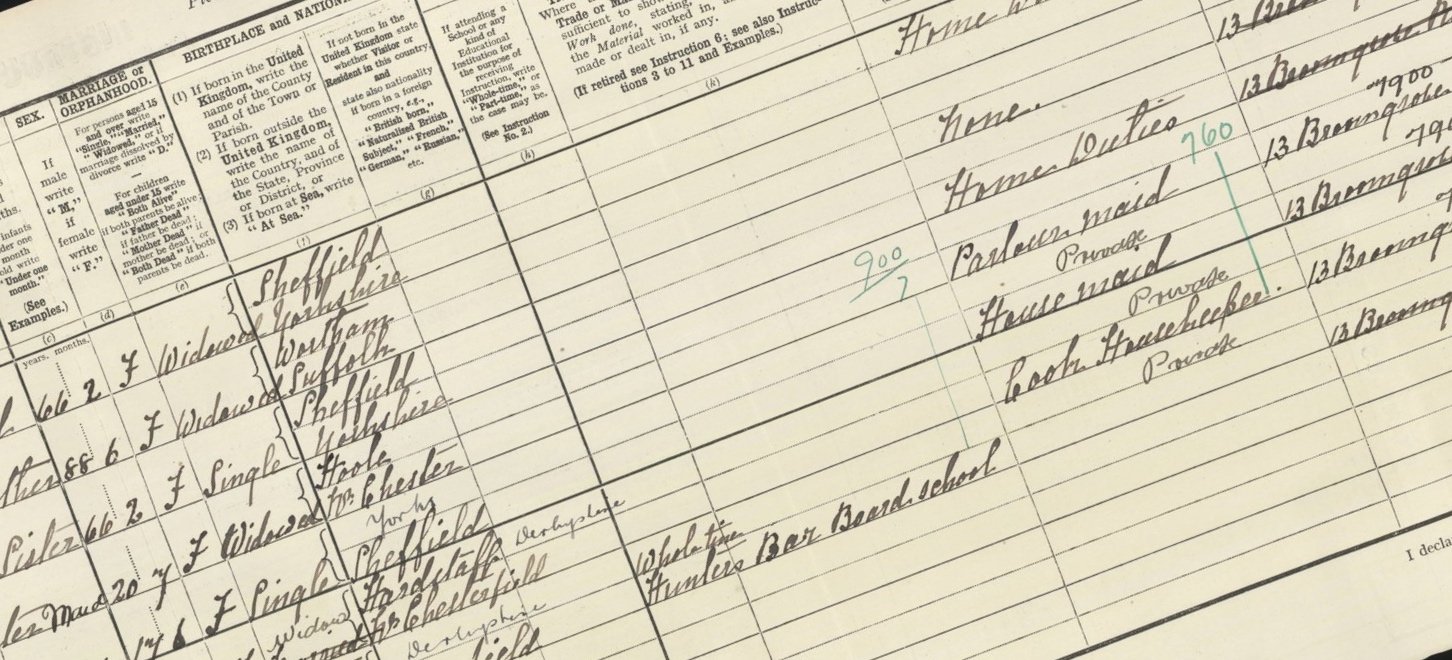 SEX.
If
male
write
"M,"
if
female
write
"F."
(d)
MARRIAGE or
ORPHANHOOD.
For persons aged 15
and over write
"Single," "Married,"
"Widowed," or if
marriage dissolved by
divorce write "D."
For children
aged under 15 write
"Both Alive"
if both parents be alive;
"Father Dead"
if father be dead;
"Mother Dead" if
mother be dead; or
"Both Dead" if both
parents be dead.
(e)
BIRTHPLACE and NATION
(1) If born in the United
Kingdom, write the
name of the County
and of the Town or
Parish.
(2) If born outside the
United Kingdom,
write the name of
the Country, and of
the State, Province
or District, or
(3) If born at Sea, write
"At Sea."
(f)
If not born in the
United Kingdom state
whether Visitor or
Resident in this country,
and
state also nationality
if born in a foreign
country, e.g.,
"British born,"
"Naturalised British
Subject," "French,"
"German," "Russian,"
etc.
(g)
If attending a
School or any
kind of
Educational
Institution for
the purpose of
receiving
Instruction, write
"Whole-time," or
"Part-time," as
the case may be.
(See Instruction
No. 2.)
(h)
Trade or Ma
sufficient to show
Work done, stating,
the Material worked in,
made or dealt in, if any.
(If retired see Instruction 6; see also Instruc-
tions 3 to 11 and Examples.)
(k)
infants
under one
month
"Under one
month."
(See
Examples.)
(c)
years. months.
66 2 F Widowed Sheffield
Yorkshire
88 6 F Widowed Wortham
Suffolk
Sister 66 2 F Single Sheffield
Yorkshire
Maid 20 7 F Widowed Hoole
Nr Chester
17 6 F Single Yorks
Sheffield
Widow Hardstaff Derbyshire
Nr Chesterfield
Derbyshire
field
Whole time
Hunters Bar Board school
Home
None
Home Duties
Parlour maid
Private
House maid
Private
Cook Housekeeper
Private
900
7
760
13 Broomgrove
7900
13 Broomgrove
13 Broomgrove
13 Broomg
13 Broomg
I decla